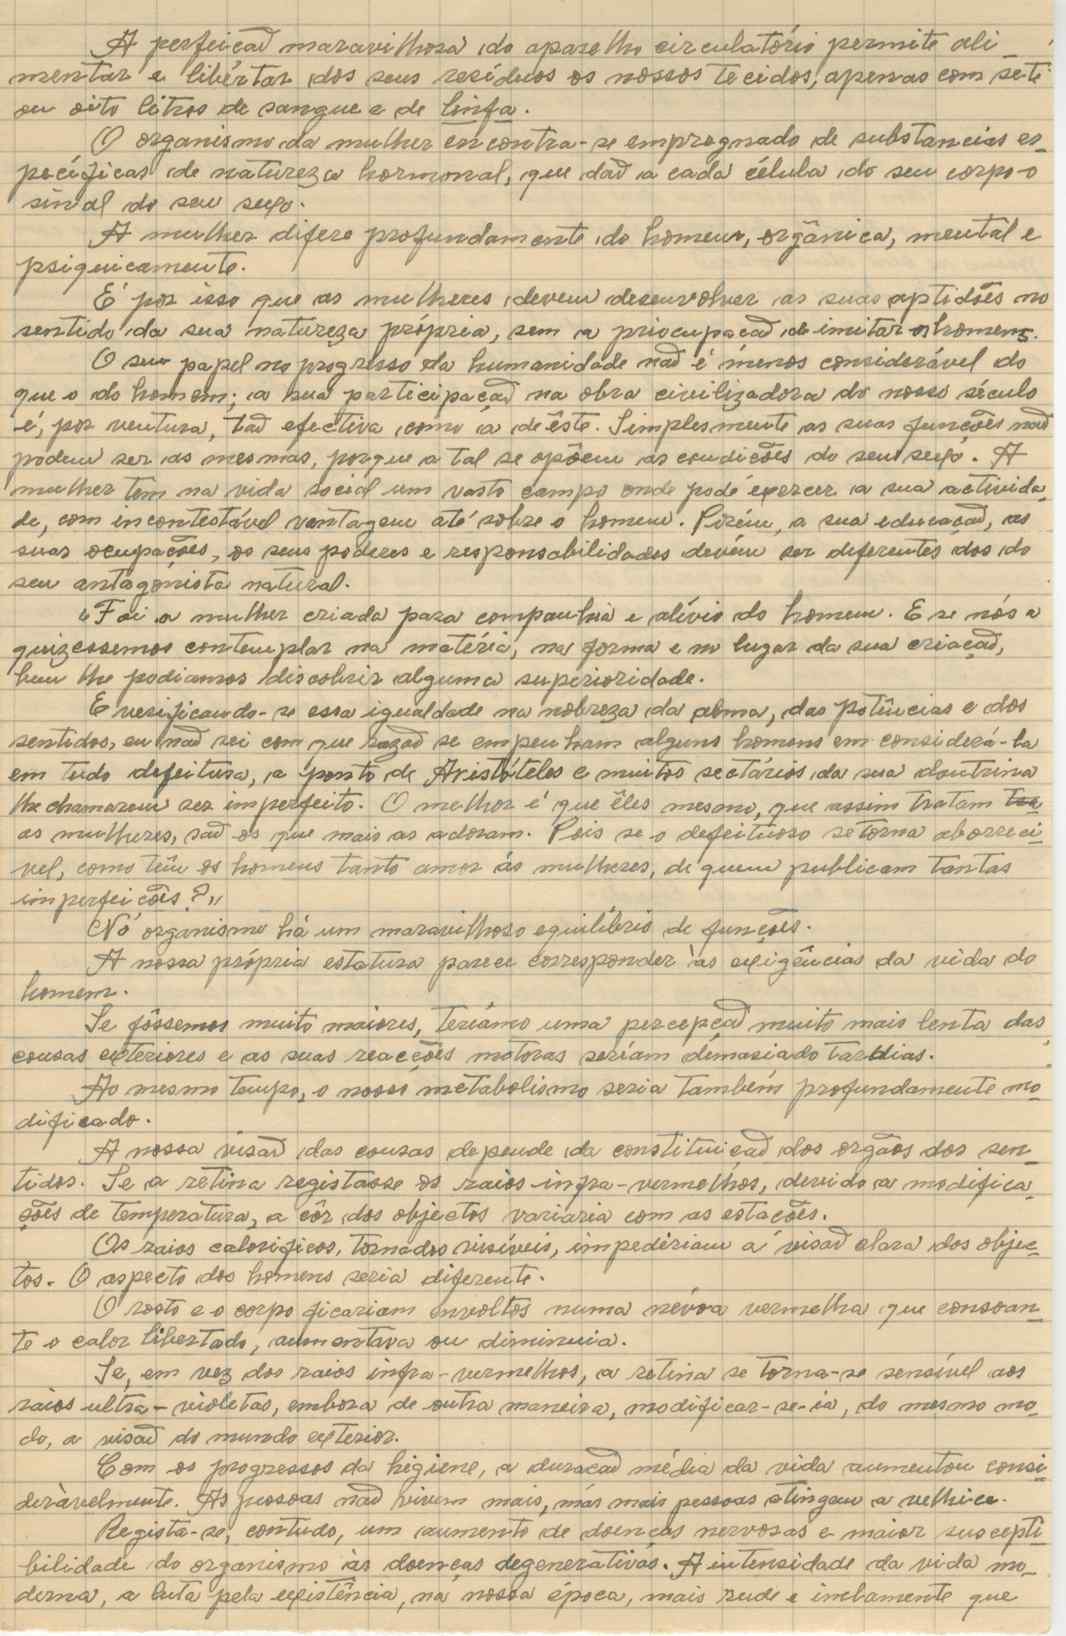 A perfeição maravilhosa do aparelho circulatório permite ali-
mentar e libértar dos seus resíduos os nossos tecidos, apenas com séte
ou oito litros de sangue e de linfa.
O organismo da mulher encontra-se empregnado de substancias es-
pecíficas de natureza hormonal, que dão a cada célula do seu corpo o
sinal do seu sexo.
A mulher difere profundamente do homem, orgânica, mental e
psiquicamente.
E' por isso que as mulheres devem desenvolver as suas aptidões no
sentido da sua natureza própria, sem a priocupação de imitar os homens.
O seu papel no progresso da humanidade não é menos considerável do
que o do homem; a sua participação na obra civilizadora do nosso século
é, por ventura, tão efectiva como a dêste. Simplesmente as suas funções não
podem ser as mesmas, porque a tal se opõem as condições do seu sexo. A
mulher tem na vida social um vasto campo onde pode exercer a sua activida-
de, com incontestável vantagem até sobre o homem. Porém, a sua educação, as
suas ocupações, os seus poderes e responsabilidades devem ser diferentes dos do
seu antagónista natural.
"Foi a mulher criada para companhia e alívio do homem. E se nós a
quizessemos contemplar na matéria, na forma e no lugar da sua criação,
bem lhe podiamos discobrir alguma superioridade.
E verificando-se essa igualdade na nobreza da alma, das potências e dos
sentidos, eu não sei com que razão se empenham alguns homens em considerá-la
em tudo defeitura, a ponto de Aristóteles e muitos sectários da sua doutrina
lhe chamarem ser imperfeito. O melhor é que êles mesmo, que assim tratam
as mulheres, são os que mais as adoram. Pois se o defeituoso se torna aborreci-
vel, como têm os homens tanto amor ás mulheres, de quem publicam tantas
imperfeições?"
No organismo há um maravilhoso equilíbrio de funções.
A nossa própria estatura parece corresponder às exigências da vida do
homem.
Se fôssemos muito maiores, teriamo uma percepção muito mais lenta das
cousas exteriores e as suas reacções motoras seriam demasiado tardias.
Ao mesmo tempo, o nosso metabolismo seria também profundamente mo-
dificado.
A nossa visão das cousas depende da constituição dos orgãos dos sen-
tidos. Se a retina registasse os raios infra-vermelhos, devido a modifica-
ções de temperatura, a côr dos objectos variaria com as estações.
Os raios calorificos, tornados visíveis, impediriam a visão clara dos objec-
tos. O aspecto dos homens seria diferente.
O rosto e o corpo ficariam envoltos numa névoa vermelha que consoan-
te o calor libertado, aumentava ou diminuia.
Se, em vez dos raios infra-vermelhos, a retina se torna-se sensível aos
raios ultra-violetas, embora de outra maneira, modificar-se-ia, do mesmo mo-
do, a visão do mundo exterior.
Com os progressos da higiene, a duração média da vida aumentou consi-
deràvelmente. As pessoas não vivem mais, mas mais pessoas atingem a velhice.
Regista-se, contudo, um aumento de doenças nervosas e maior suscepti-
bilidade do organismo às doenças degenerativas. A intensidade da vida mo-
derna, a luta pela existência, na nossa época, mais rude e que